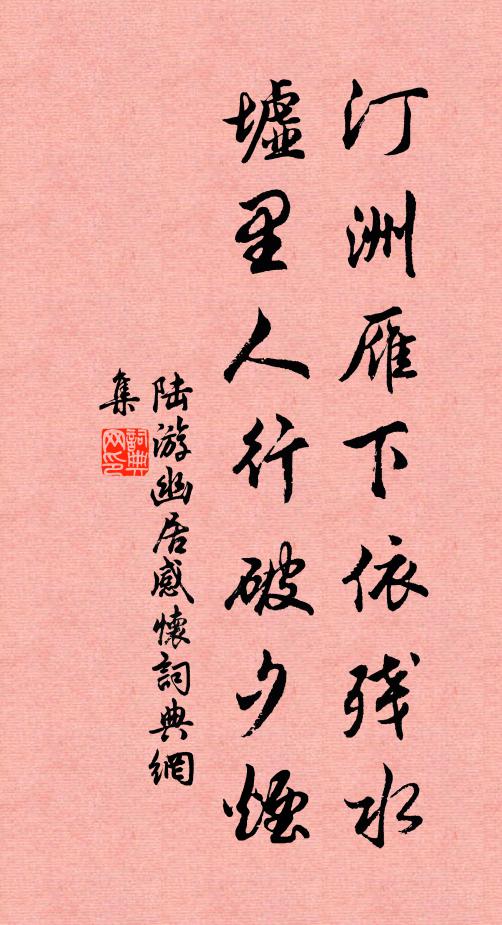 汀洲雁下依残水
墟里人行破夕煙
陆游幽居感懷詞典網
集
詞典网印